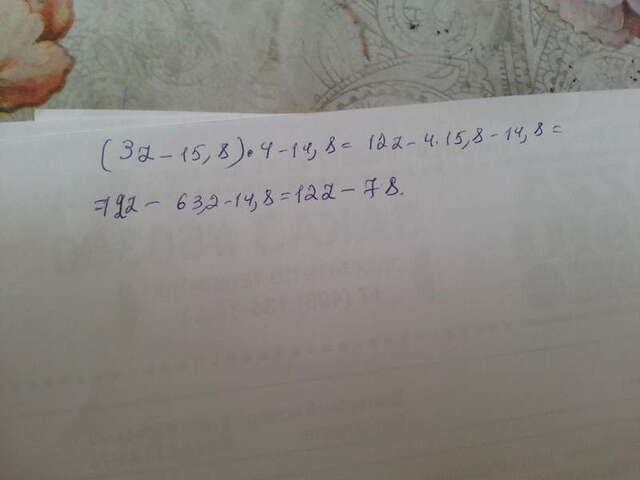 (3z - 15,8)•4 - 14,8 = 12z - 4·15,8 - 14,8 =
= 12z - 63,2 - 14,8 = 12z - 78.